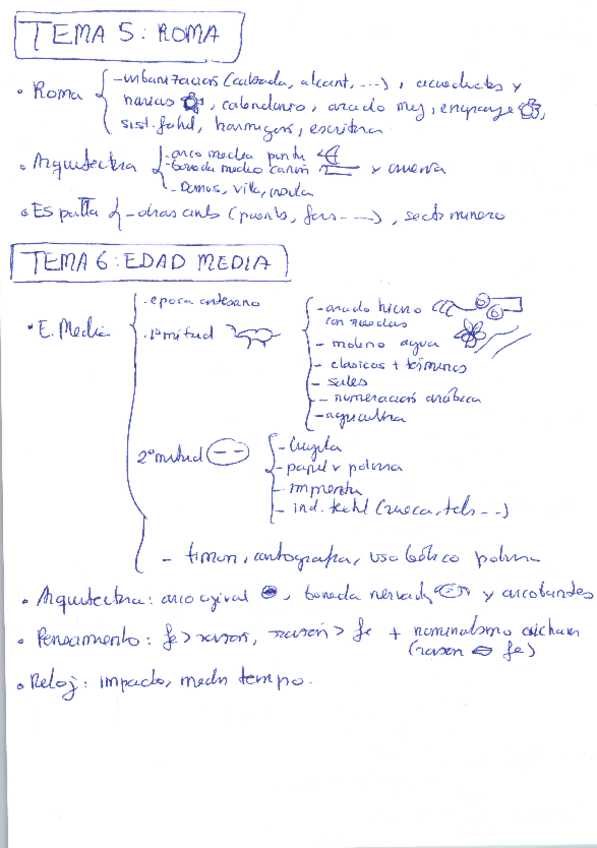 TEMA 5: ROMA
• Roma
- urbanización (calzada, alcant, ...), acueductos y
norias, calendario, arado mej, engranaje,
sist. fahl, hormigón, escritura
• Arquitectura
- arco medio punto
- boveda medio cañon y
- Domus, villa,
• España - obras (puente, ...), sector minero
TEMA 6: EDAD MEDIA
• E. Media
• epoca artesano
• 1ª mitad
- arado hierro
con ruedas
- molino agua
- clasicos + términos
- sales
- numeración arábica
- agricultura
2ª mitad
- brujula
- papel y polvora
- imprenta
- ind. textil (rueca, tel --)
- timon, cartografia, uso bélico polvora
• Arquitectura: arco ojival, boveda nervada y arcobotantes
• Pensamiento: fe > razón, razón > fe + nominalismo
(razon ⇔ fe)
• Reloj: impacto, medir tiempo.